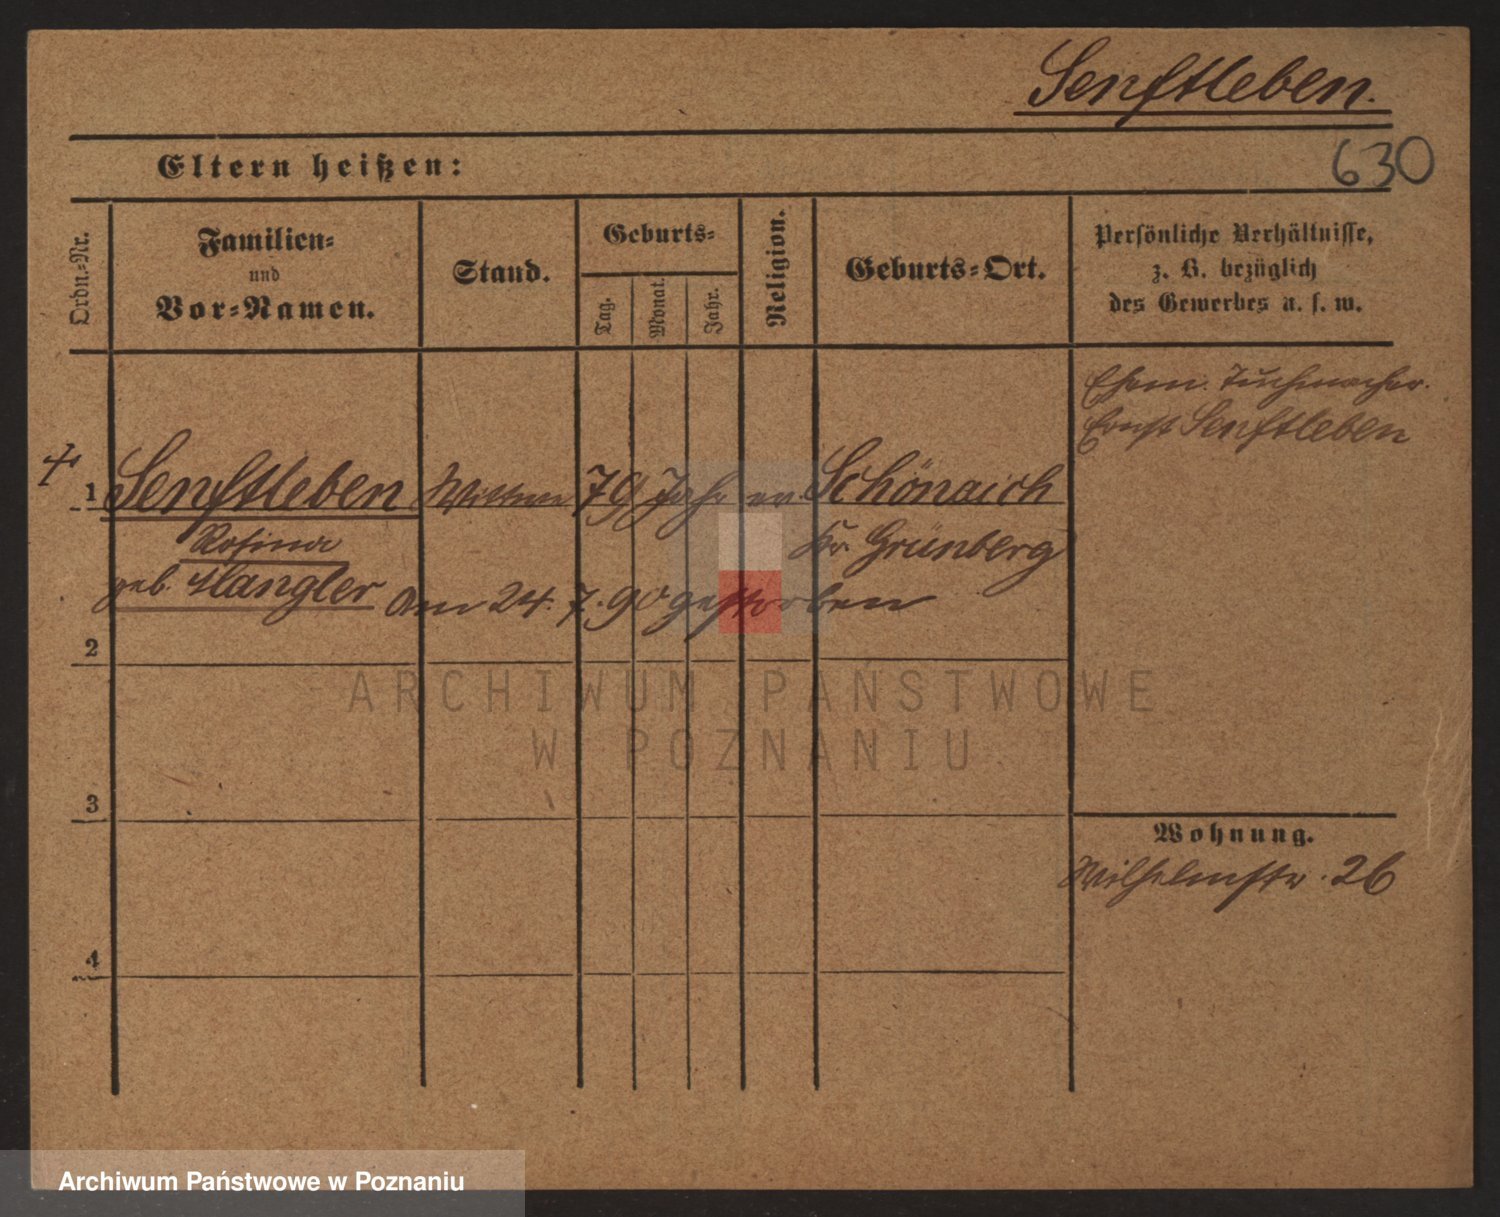 Senftleben.
630
Eltern heißen:
Ordn.-Nr.
Familien-
und
Vor-Namen.
Stand.
Geburts-
Tag.
Monat.
Jahr.
Religion.
Geburts-Ort.
Persönliche Verhältnisse,
z. B. bezüglich
des Gewerbes u. s. w.
Ehem. Tuchmacher.
Ernst Senftleben
1 Senftleben Wittwe 79 Jahr ev. Schönaich
Rosina
Kr. Grünberg
geb.
am 24.7.90 gestorben
2
3
4
Wohnung.
Wilhelmstr. 26
ARCHIWUM PAŃSTWOWE
W POZNANIU
Archiwum Państwowe w Poznaniu